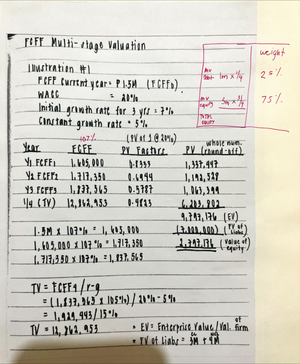 FCFF Multi-stage Valuation
Illustration #1
FCFF Current year = ₱1.5M (FCFF0)
WACC = 20%
Initial growth rate for 3 yrs = 7%
Constant growth rate = 5%
weight
MV Debt 1M x 1/4 25%
MV equity 3M x 3/4 75%
TOTAL equity
107% (PV of 1 @ 20%) whole num.
Year FCFF PV Factors PV (round-off)
Y1 FCFF1 1,605,000 0.8333 1,337,447
Y2 FCFF2 1,717,350 0.6944 1,192,528
Y3 FCFF3 1,837,565 0.5787 1,063,399
Y4 (TV) 12,862,953 0.4823 6,203,802
9,797,176 (EV)
1.5M x 107% = 1,605,000 (7,000,000) (FV of Liabs)
1,605,000 x 107% = 1,717,350 2,797,176 (Value of equity)
1,717,350 x 107% = 1,837,565
TV = FCFF4 / r-g
= (1,837,565 x 105%) / 20% - 5%
= 1,929,443 / 15%
TV = 12,862,953
* EV = Enterprise Value / Val. of firm
* FV of Liabs = 3M + 4M